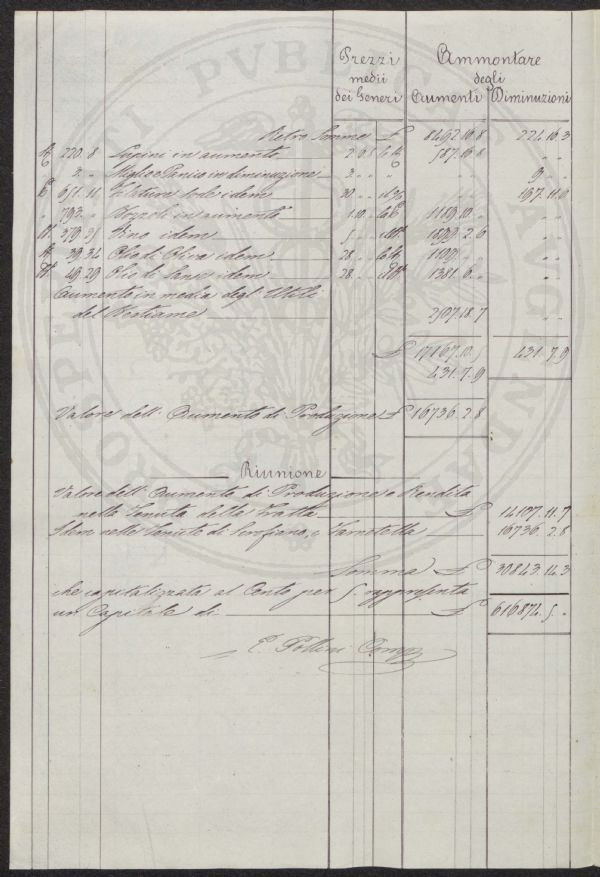 Prezzi medii dei Generi
Ammontare degli
Aumenti Diminuzioni
Retro Somma £ 8492.10.8 224.10.3
220.8 Lupini in aumento 587.16.8
2 Miglio e Panico in diminuzione 3 9
651.11 idem 30 197.11.6
793 in aumento 1.10 1189.10
379.25 Vino idem 5 1899.2.6
39.34 Olio di Oliva idem 28
49.29 Olio di Sansa idem 28 1381.6
Aumento in media degli Utili
del Bestiame 2507.18.7
£ 17167.10.5 431.7.9
431.7.9
Valore dell' Aumento di Produzione £ 16736.2.8
Riunione
Valore dell' Aumento di Produzione e Rendita
nella Tenuta della Tratta £ 14107.11.7
Idem nelle Tenute di Serofiano, e 16736.2.8
Somma £ 30843.14.3
che capitalizzata al Cento per 5. rappresenta
un Capitale di £ 616874.5
E. Pollini Comp
PROSPERITATI PVBLICAE AVGENDAE